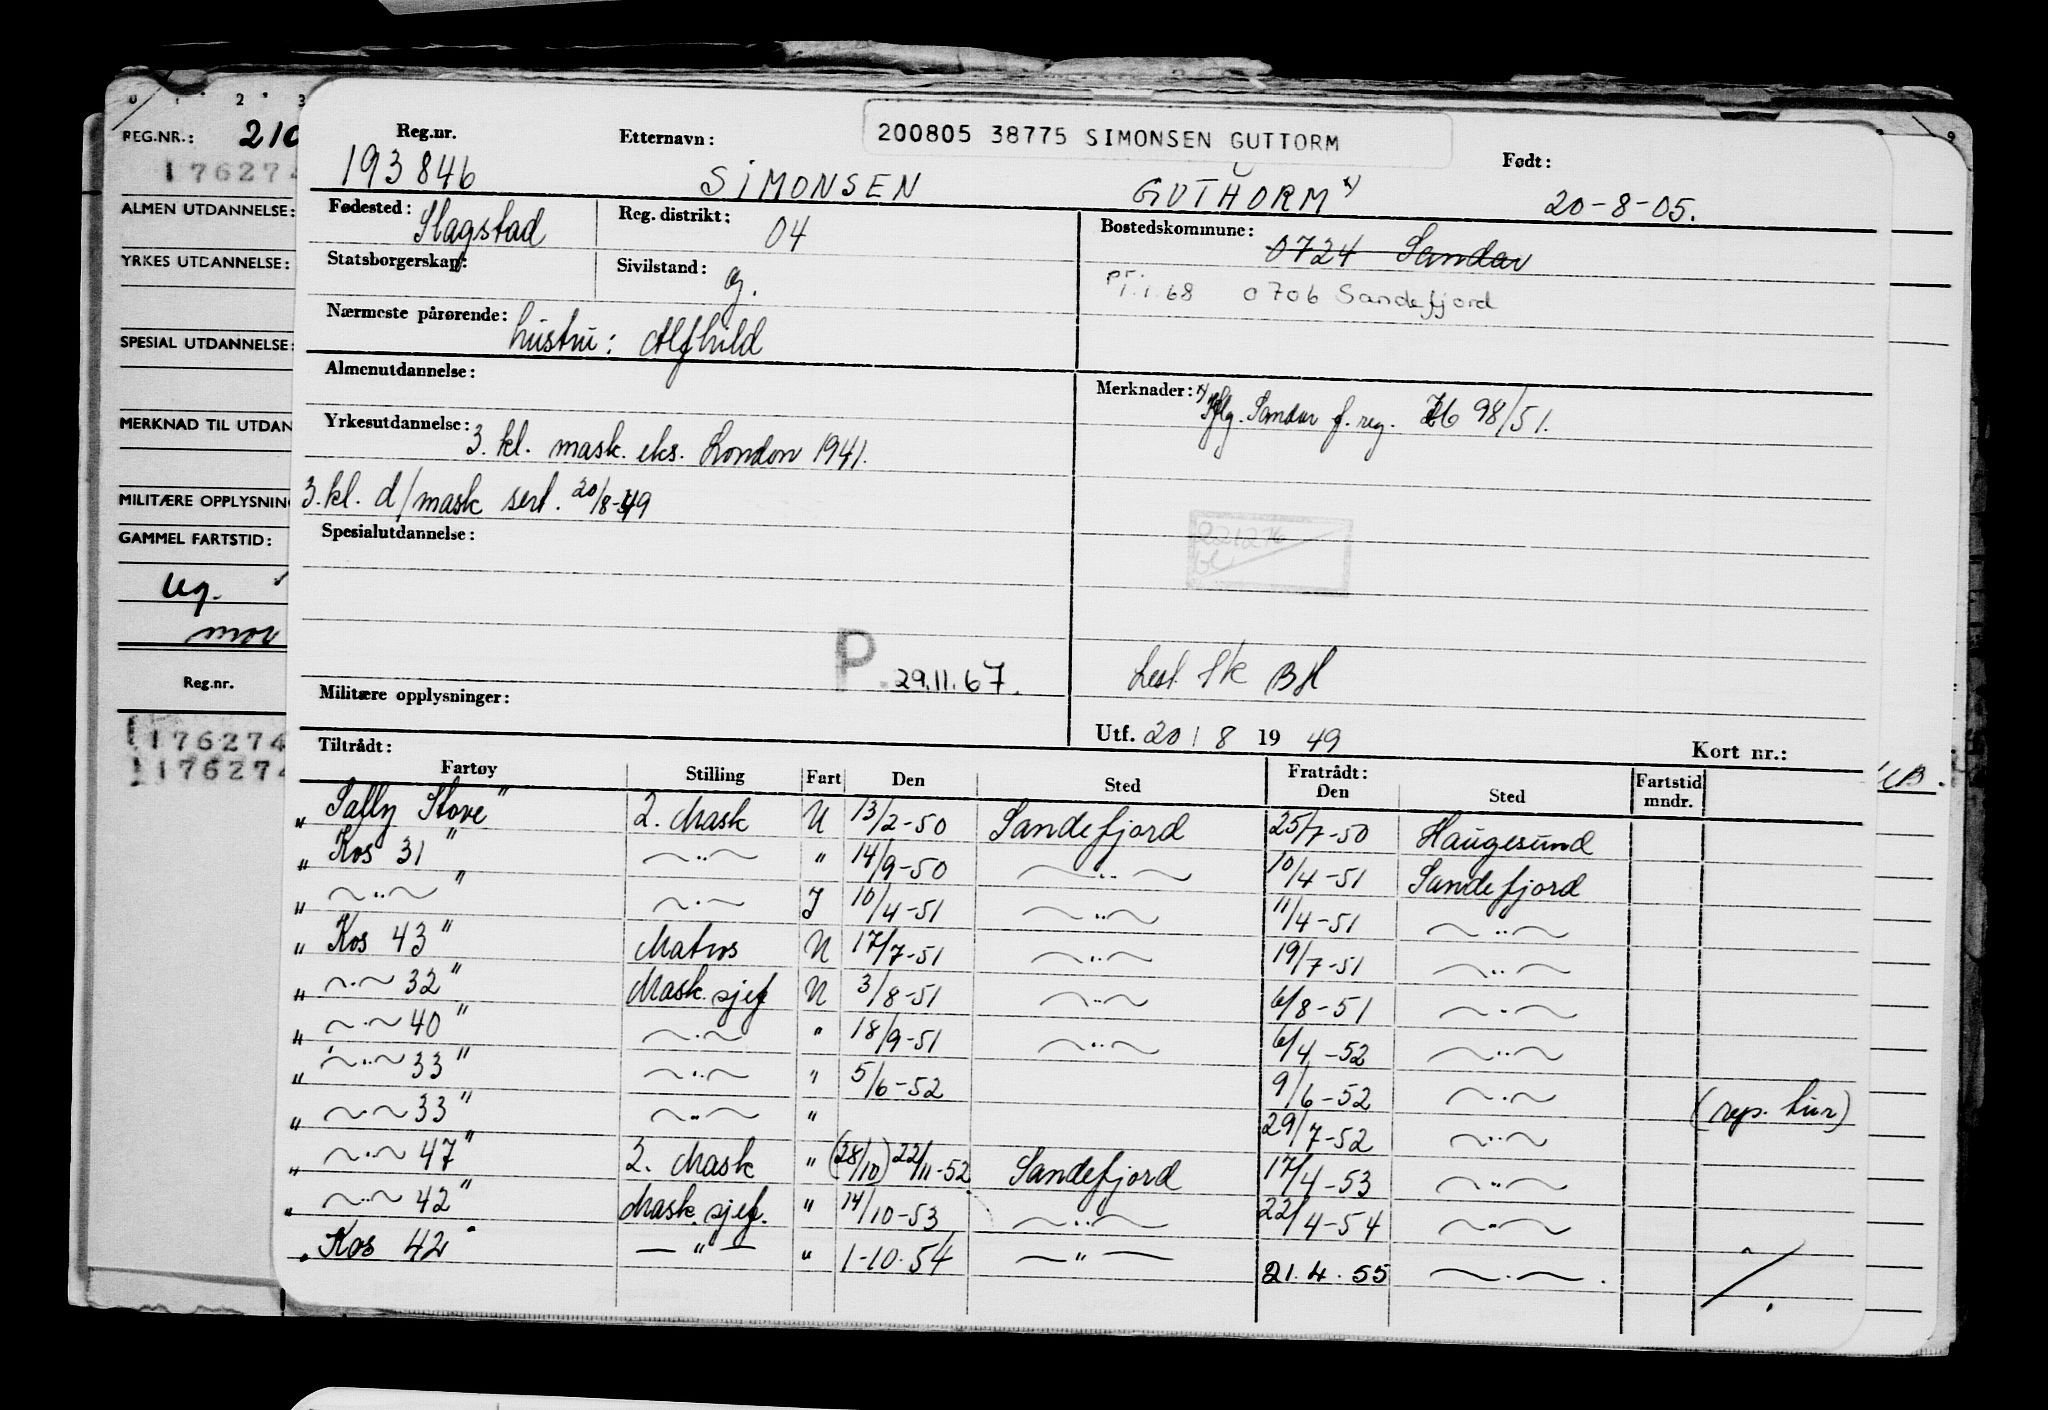 0 1 2 3
REG.NR.: 210
176274
ALMEN UTDANNELSE:
YRKES UTDANNELSE:
SPESIAL UTDANNELSE:
MERKNAD TIL UTDAN
MILITÆRE OPPLYSNING
GAMMEL FARTSTID:
ug.
mor
Reg.nr.
176274
176274
9
Reg.nr. Etternavn: 200805 38775 SIMONSEN GUTTORM Født:
193846 SIMONSEN GUTHORM x) 20-8-05.
Fødested: Slagstad Reg. distrikt: 04 Bostedskommune: 0724 Sandar
Statsborgerskap: Sivilstand: g. pr. 1.1.68 0706 Sandefjord
Nærmeste pårørende: hustru: Alfhild
Almenutdannelse: Merknader: x) Iflg. Sandar f. reg. 98/51.
Yrkesutdannelse: 3. kl. mask. eks. London 1941.
3. kl. d/mask sert. 20/8-49
Spesialutdannelse: 221276
P. 29.11.67. Lest BH
Militære opplysninger:
Utf. 20 / 8 19 49 Kort nr.:
Tiltrådt: Fratrådt:
Fartøy Stilling Fart Den Sted Den Sted Fartstid mndr.
„ Sally Stove" 2. Mask U 13/2-50 Sandefjord 25/7-50 Haugesund
„ Kos 31" ~"~ " 14/9-50 ~"~ 10/4-51 Sandefjord
„ ~"~" ~"~ I 10/4-51 ~"~ 11/4-51 ~"~
„ Kos 43" Matros U 17/7-51 ~"~ 19/7-51 ~"~
„ ~"~ 32" Mask. sjef U 3/8-51 ~"~ 6/8-51 ~"~
„ ~"~ 40" ~"~ " 18/9-51 ~"~ 6/4-52 ~"~
„ ~"~ 33" ~"~ " 5/6-52 9/6-52 ~"~
„ ~"~ 33" ~"~ " 29/7-52 ~"~ (rep. tur)
„ ~"~ 47" 2. Mask " (28/10) 22/11-52 Sandefjord 17/4-53 ~"~
„ ~"~ 42" Mask. sjef. " 14/10-53 ~"~ 22/4-54 ~"~
„ Kos 42" —"— " 1-10-54 —"— 21.4.55 ~"~